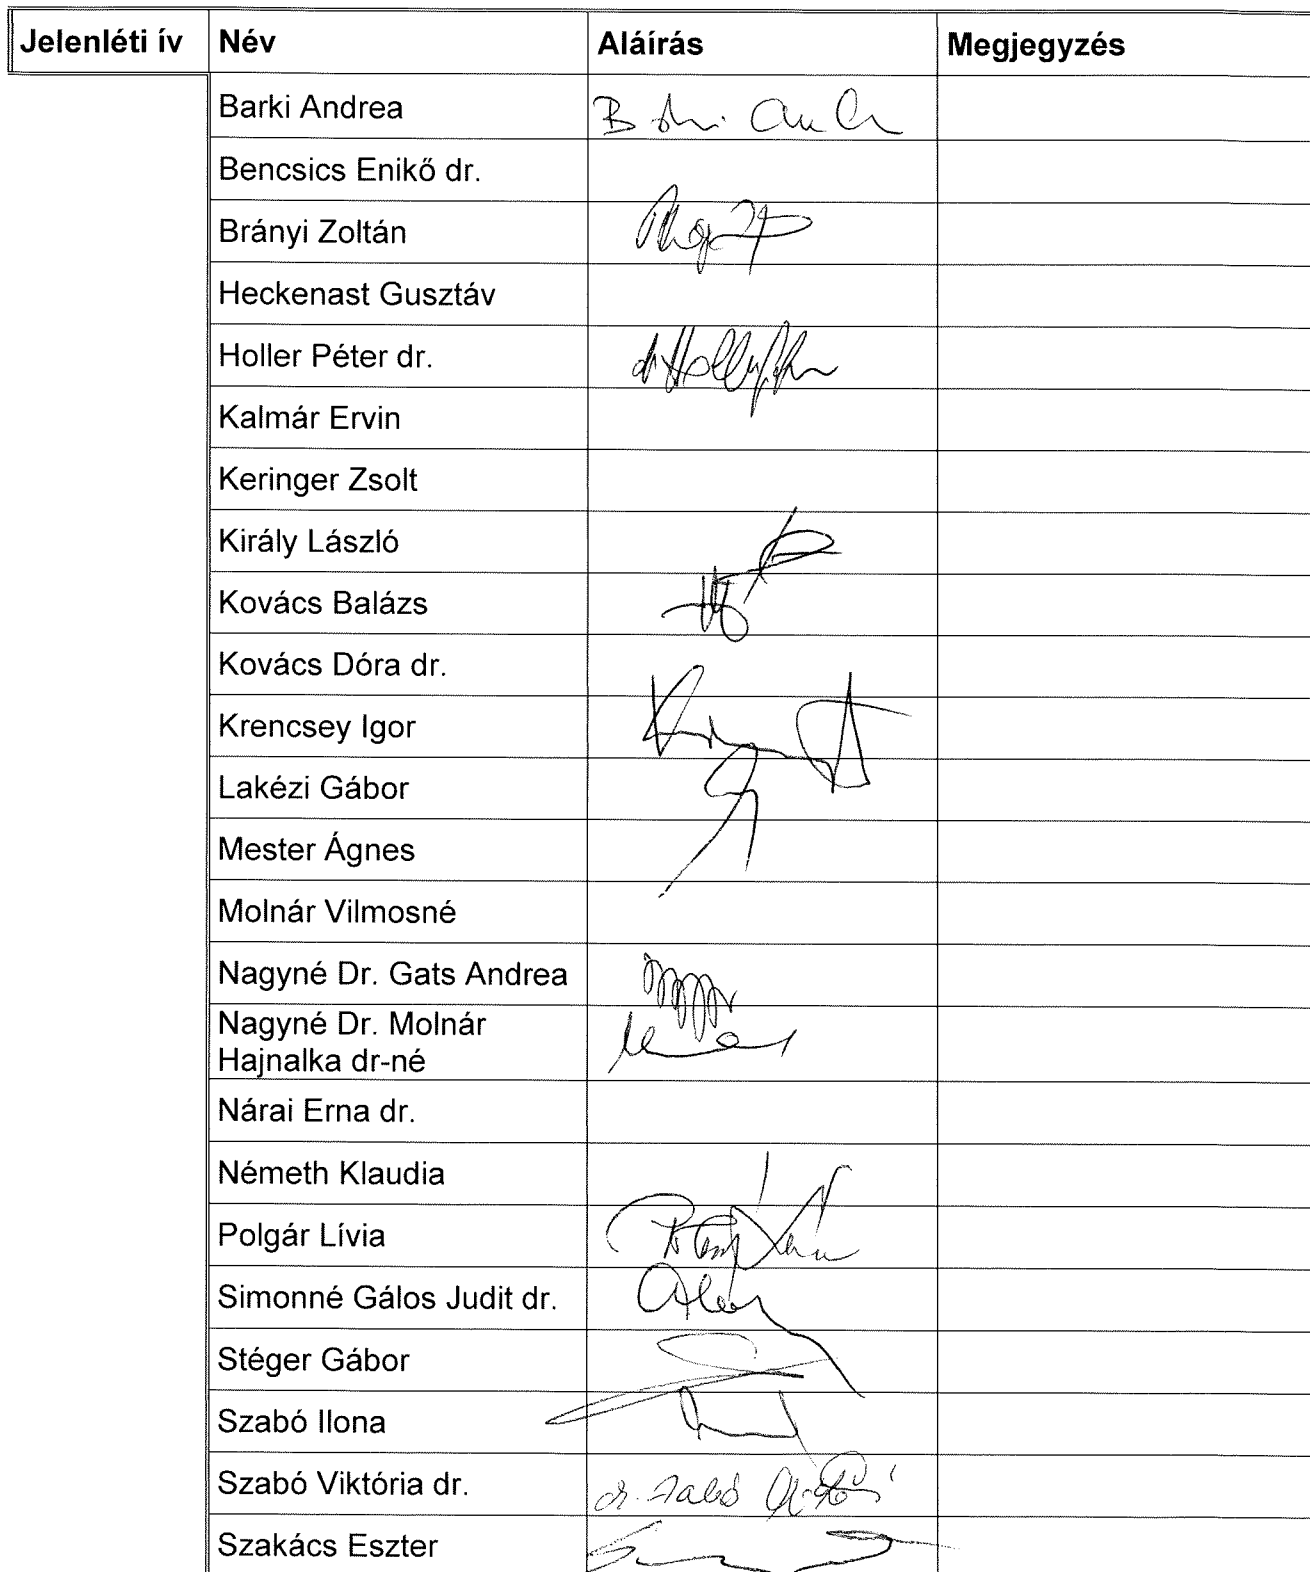 Jelenléti ív Név Aláírás Megjegyzés
Barki Andrea
Bencsics Enikő dr.
Brányi Zoltán
Heckenast Gusztáv
Holler Péter dr.
Kalmár Ervin
Keringer Zsolt
Király László
Kovács Balázs
Kovács Dóra dr.
Krencsey Igor
Lakézi Gábor
Mester Ágnes
Molnár Vilmosné
Nagyné Dr. Gats Andrea
Nagyné Dr. Molnár
Hajnalka dr-né
Nárai Erna dr.
Németh Klaudia
Polgár Lívia
Simonné Gálos Judit dr.
Stéger Gábor
Szabó Ilona
Szabó Viktória dr. dr. Szabó
Szakács Eszter